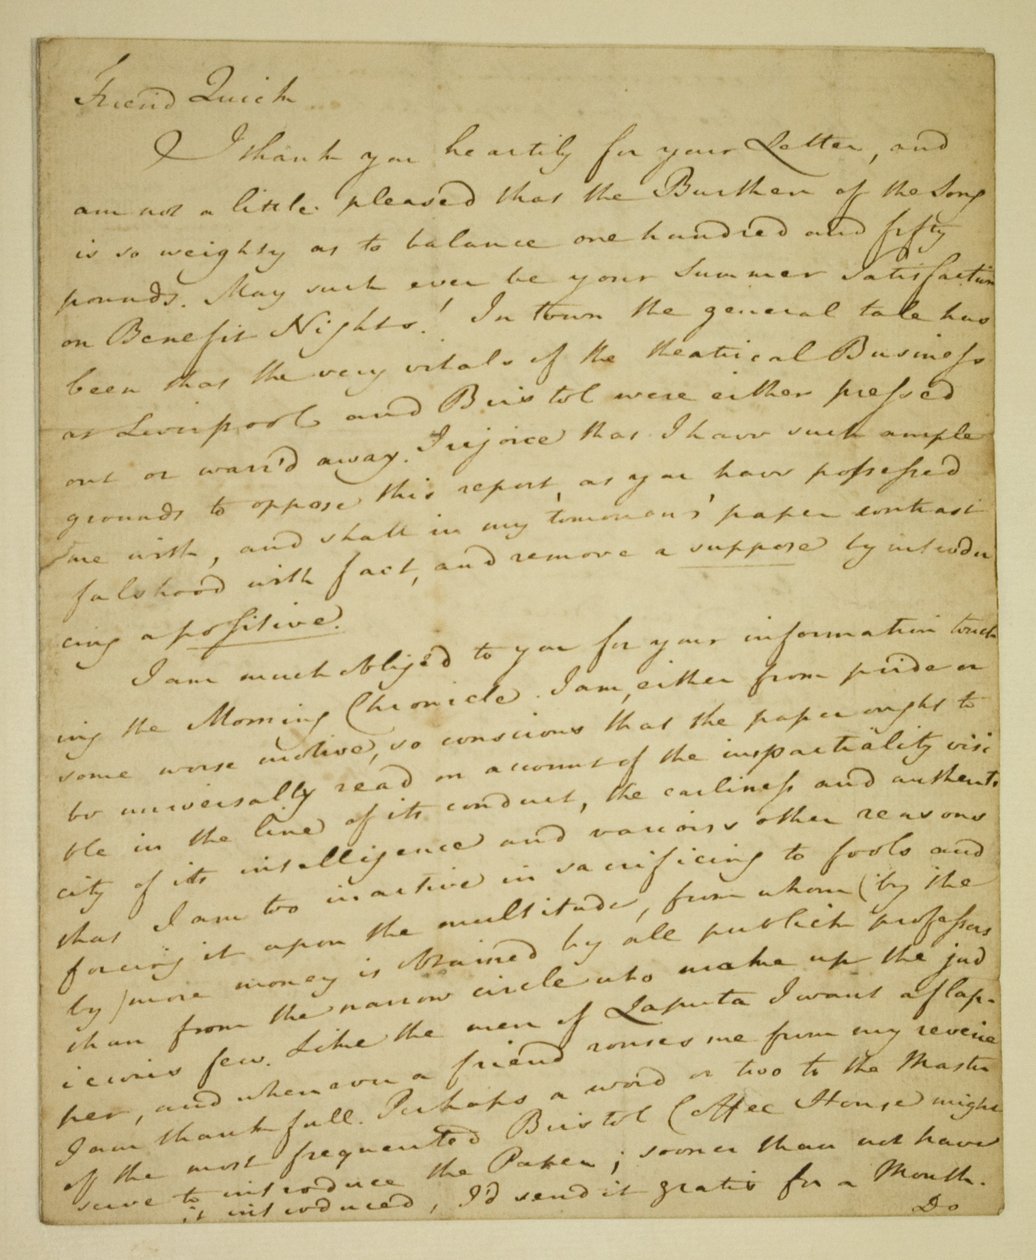 Friend Quick
I thank you heartily for your Letter, and
am not a little pleased that the Burthen of the Song
is so weighty as to balance one hundred and fifty
pounds. May such ever be your Summer Satisfaction
on Benefit Nights! In town the general tale has
been that the very vitals of the theatrical Business
at Liverpool and Bristol were either pressed
out or warr'd away. I rejoice that I have such ample
grounds to oppose this report, as you have possessed
me with, and shall in my tomorrow's paper contrast
falshood with fact, and remove a suppose by introdu
cing a positive.
I am much obliged to you for your information touch
ing the Morning Chronicle. I am, either from pride or
some worse motive, so conscious that the paper ought to
be universally read on account of the impartiality visi
ble in the line of its conduct, the earliness and authenti
city of its intelligence and various other reasons
that I am too inactive in sacrificing to fools and
forcing it upon the multitude, from whom (by the
by) more money is obtained by all publick professors
than from the narrow circle who make up the jud
icious few. Like the men of Laputa I want a flap-
per, and whenever a friend rouses me from my reverie
I am thankfull. Perhaps a word or two to the Master
of the most frequented Bristol Coffee House might
serve to introduce the Paper; sooner than not have
it introduced, I'd send it gratis for a Month.
Do